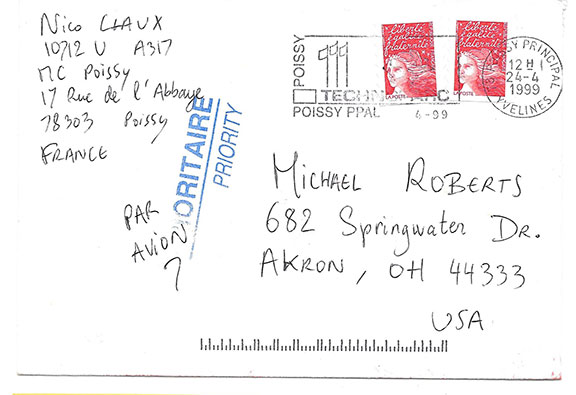 Nico CLAUX
10712 U A317
MC Poissy
17 Rue de l'Abbaye
78303 Poissy
FRANCE
PRIORITAIRE
PRIORITY
PAR
AVION
POISSY
POISSY PPAL
4-99
Liberté
égalité
fraternité
LA POSTE
Liberté
égalité
fraternité
LA POSTE
PRINCIPAL
12 H
24-4
1999
YVELINES
MICHAEL ROBERTS
682 Springwater DR.
AKRON, OH 44333
USA